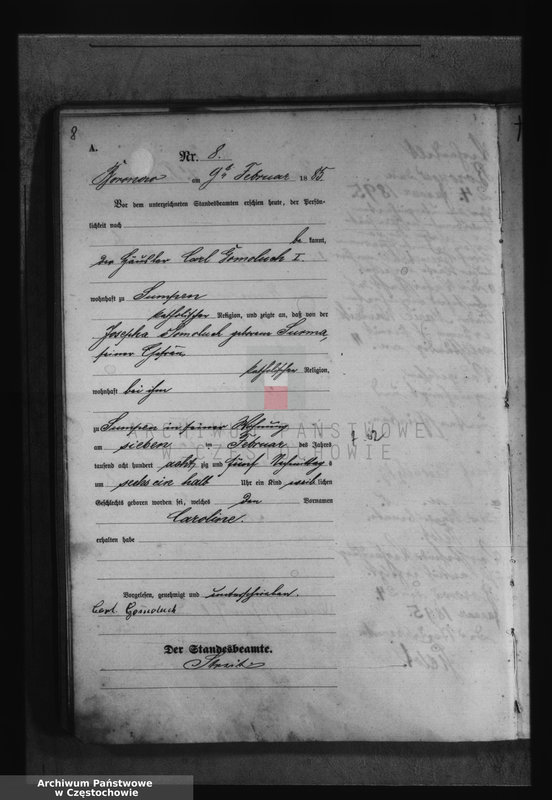 8
A.
Nr. 8.
Boronow am 9ten Februar 1885.
Vor dem unterzeichneten Standesbeamten erschien heute, der Persön-
lichkeit nach
be kannt,
der Häusler Carl Gomoluch I.
wohnhaft zu Lumpen
katholischer Religion, und zeigte an, daß von der
Josepha Gomoluch geborene
seiner Ehefrau,
katholischer Religion,
wohnhaft bei ihm
ARCHIWUM PAŃSTWOWE
W CZĘSTOCHOWIE
zu Lumpen in seiner Wohnung
am sieben ten Februar des Jahres
tausend acht hundert acht zig und fünf Nachmittags
um sechs ein halb Uhr ein Kind weib lichen
Geschlechts geboren worden sei, welches den Vornamen
Caroline.
erhalten habe
Vorgelesen, genehmigt und unterschrieben.
Carl Gomoluch
Der Standesbeamte.
Archiwum Państwowe
w Częstochowie